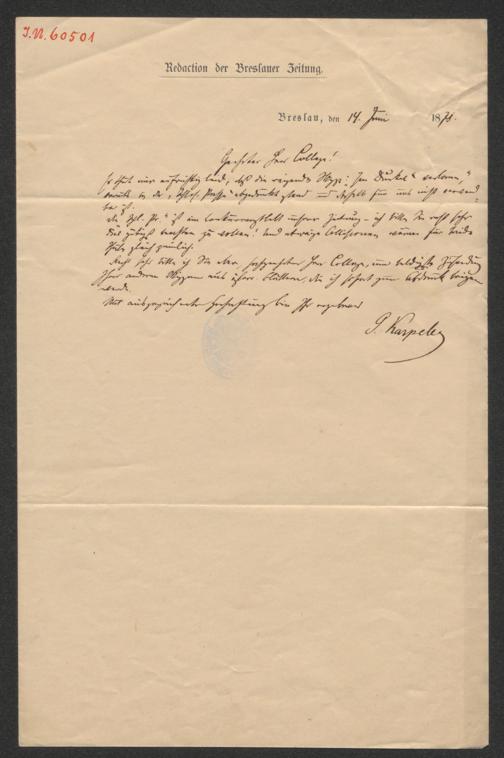 I.N. 60501
Redaction der Breslauer Zeitung.
Breslau, den 14. Juni 1871.
Geehrter Herr College!
Es thut mir aufrichtig leid, daß die reizende Skizze: "Im Dunkel verloren"
bereits in der "Schles. Presse" abgedruckt stand und deshalb für uns nicht verwend-
bar ist.
Die "Schl. Pr." ist ein Concurrenzblatt unserer Zeitung – ich bitte Sie recht sehr
dies gütigst beachten zu wollen! und etwaige Collisionen wären für beide
Theile gleich peinlich.
Recht sehr bitte ich Sie aber, hochgeehrter Herr College, um baldigste Zusendung
Ihrer anderen Skizzen aus, die ich sofort zum Abdruck bringen
werde.
Mit ausgezeichneter Hochachtung bin Ihr ergebener
G. Karpeles